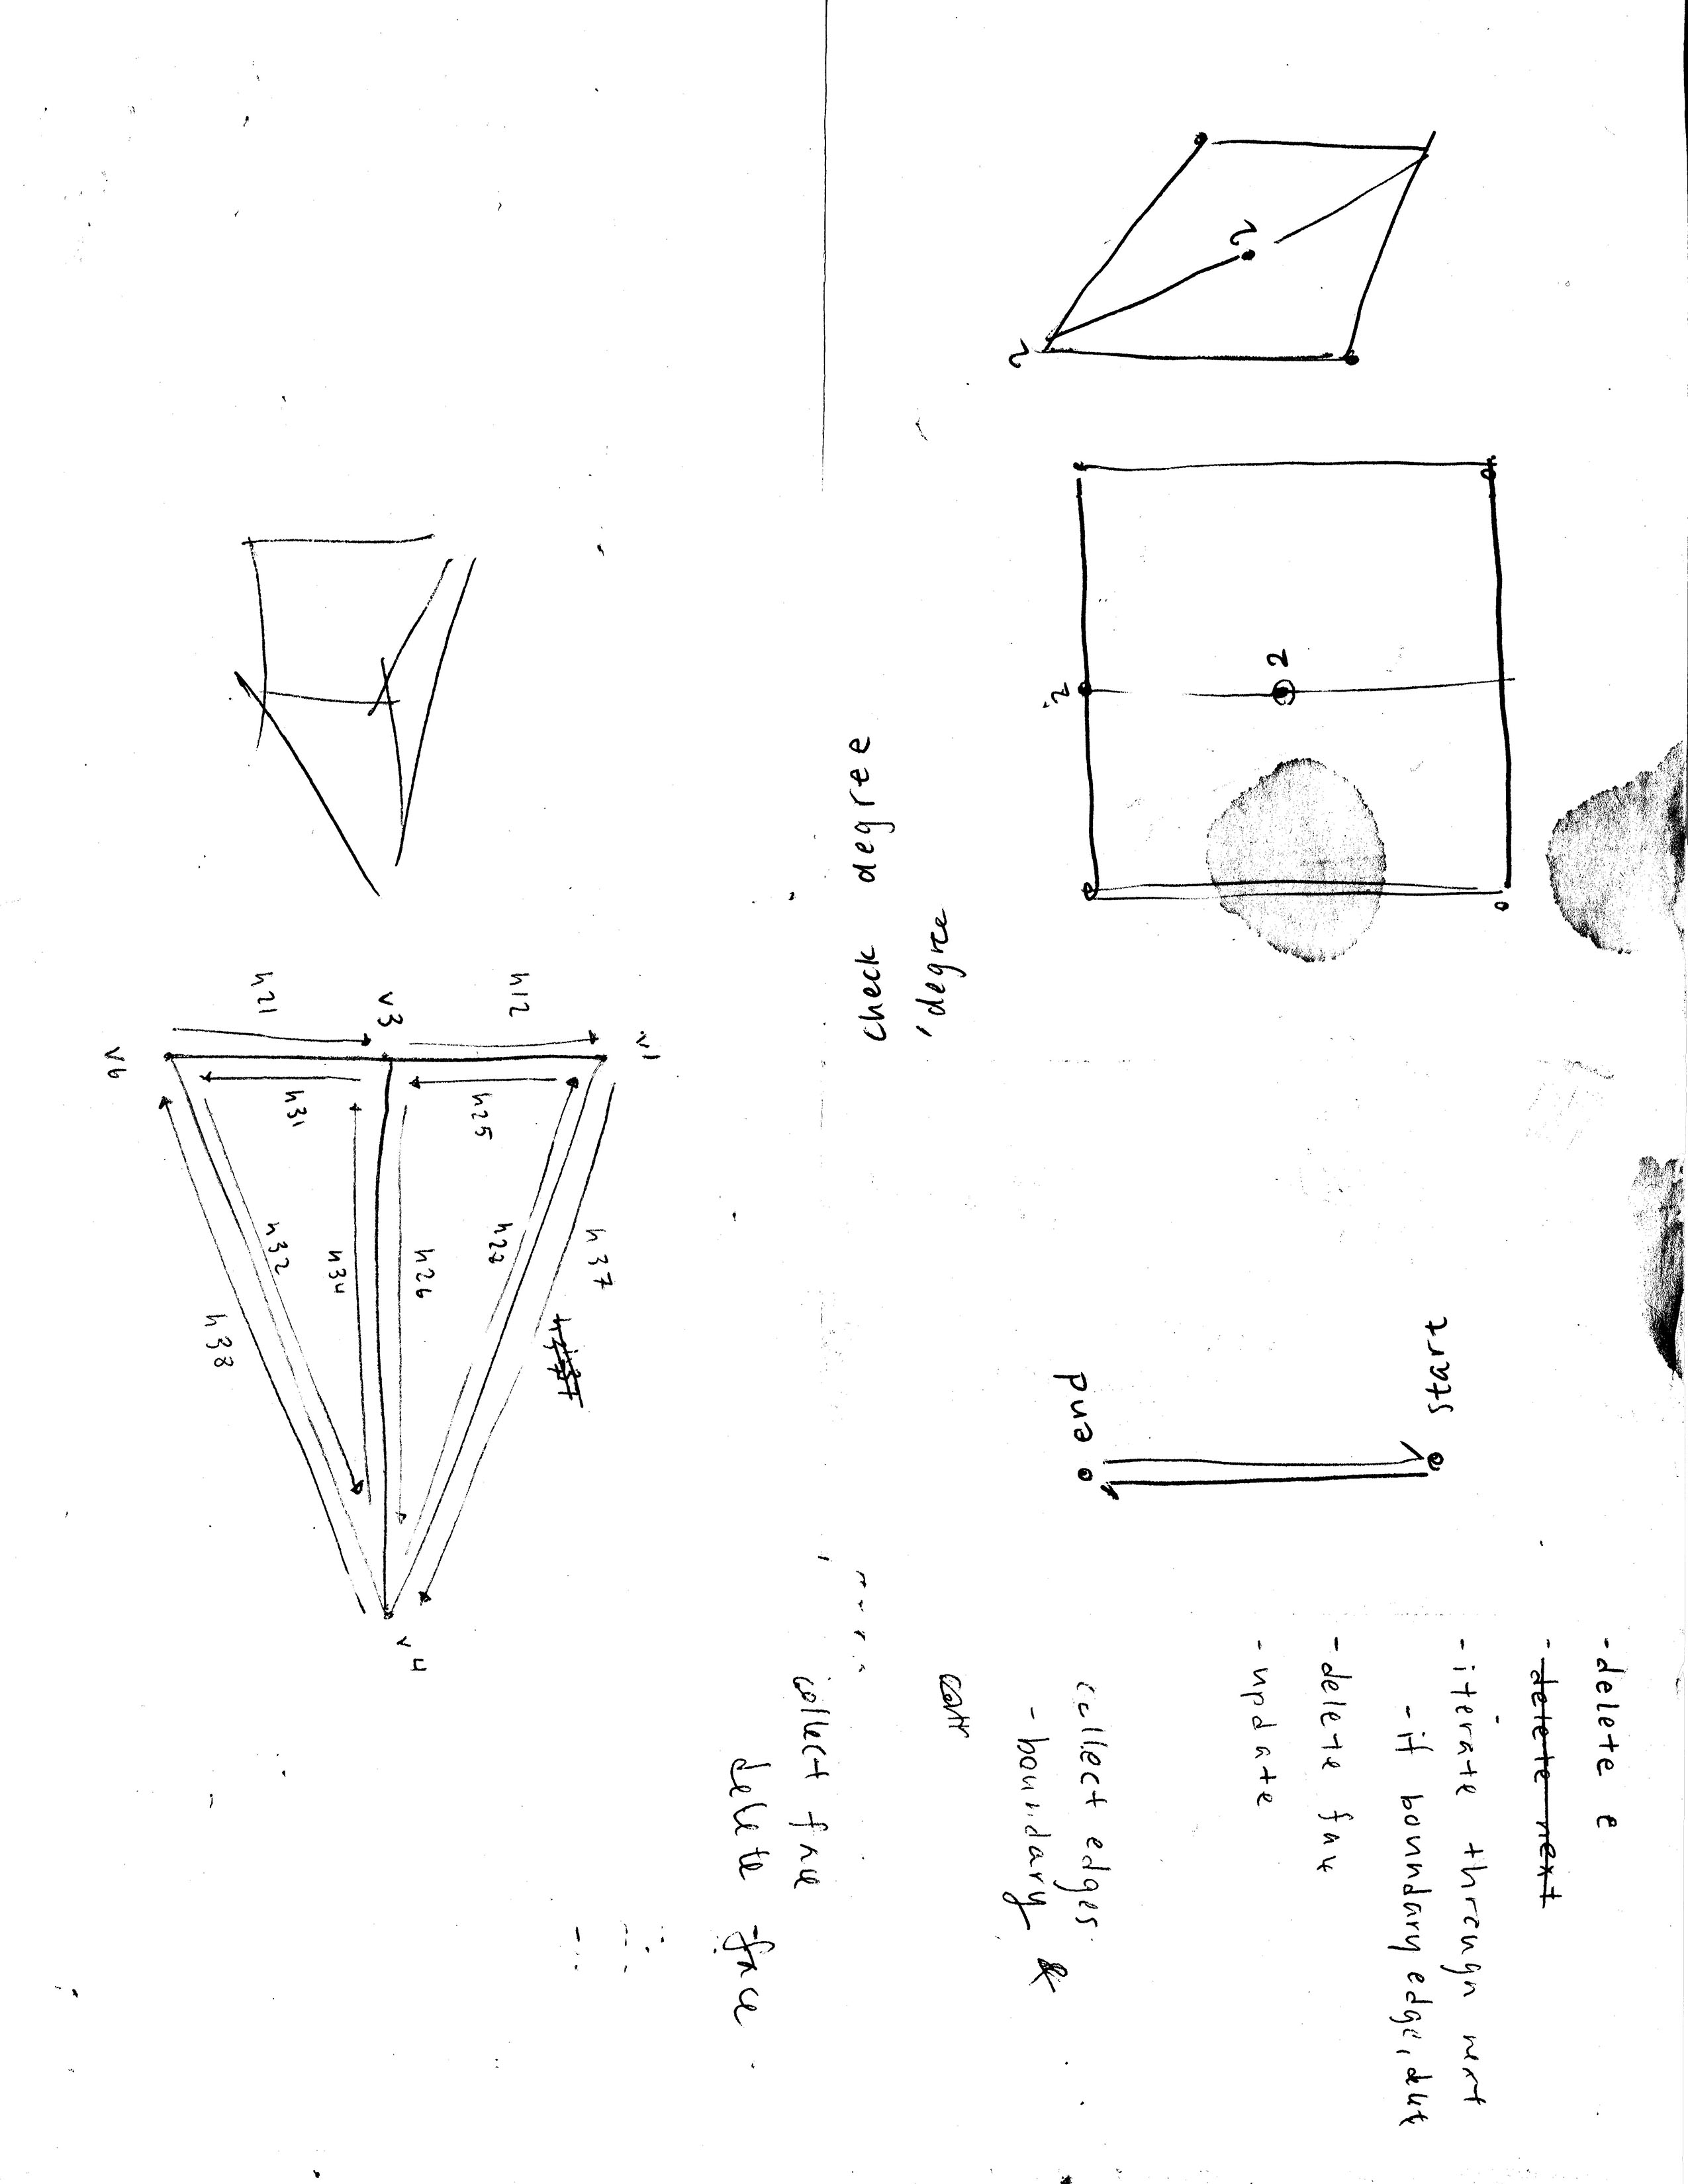 - delete e
- delete next
- iterate through next
- if boundary edge, delete
- delete face
- update
collect edges
- boundary &
collect face
delete face
start
end
check degree
degree
2
2
2
2
v1
h12
v3
h21
v6
h25
h31
h37
h22
h26
h34
h32
h38
v4